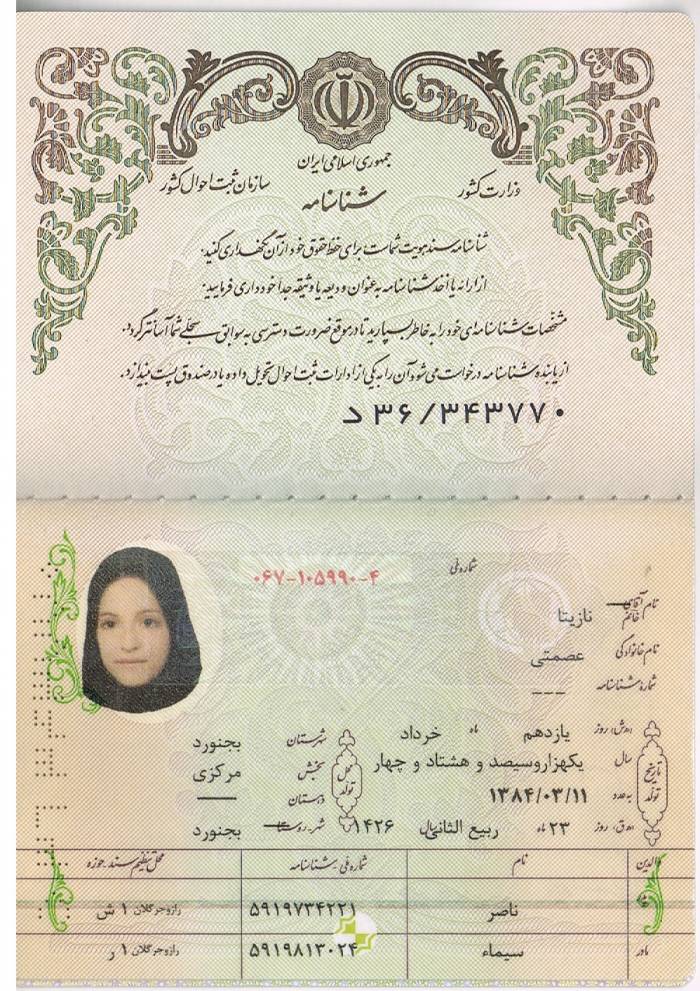 جمهوری اسلامی ایران
وزارت کشور
سازمان ثبت احوال کشور
شناسنامه
شناسنامه سند هویت شماست برای حفظ حقوق خود از آن نگهداری کنید.
از ارائه یا اخذ شناسنامه به عنوان ودیعه یا وثیقه جداً خودداری فرمایید.
مشخصات شناسنامه‌ای خود را به خاطر بسپارید تا در موقع ضرورت دسترسی به سوابق سجلی شما آسانتر گردد.
از یابنده شناسنامه درخواست می‌شود آن را به یکی از ادارات ثبت احوال تحویل داده یا در صندوق پست بیندازد.
د ۳۶/۳۴۳۷۷۰
شماره ملی ۰۶۷-۱۰۵۹۹۰-۴
نام آقای خانم نازیتا
نام خانوادگی عصمتی
شماره شناسنامه ---
تاریخ تولد
(ه‍.ش) روز یازدهم ماه خرداد
سال یکهزاروسیصد و هشتاد و چهار
به عدد ۱۳۸۴/۰۳/۱۱
(ه‍.ق) روز ۲۳ ماه ربیع الثانی سال ۱۴۲۶
محل تولد
شهرستان بجنورد
بخش مرکزی
دهستان ---
شهر-روستا بجنورد
والدین نام شماره ملی-شناسنامه محل تنظیم سند-حوزه
ناصر ۵۹۱۹۷۳۴۲۲۱ رازوجرگلان ۱ ش
مادر سیماء ۵۹۱۹۸۱۳۰۲۴ رازوجرگلان ۱ ر